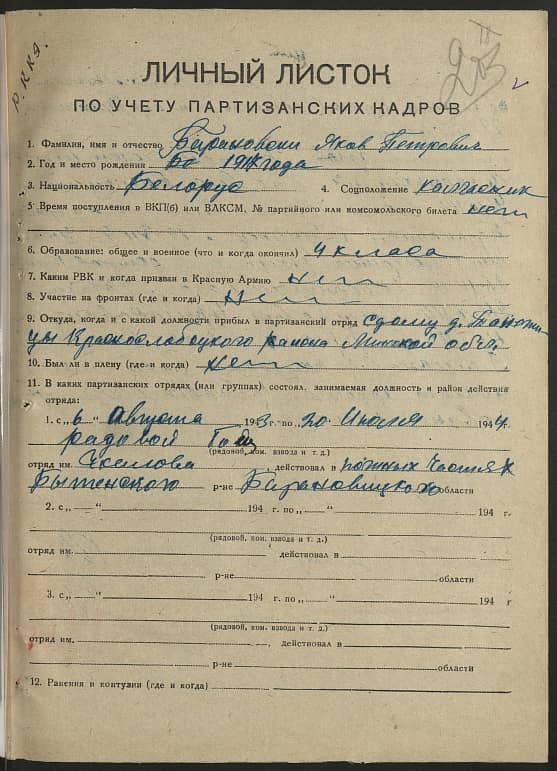 Р. ККА.
ЛИЧНЫЙ ЛИСТОК
ПО УЧЕТУ ПАРТИЗАНСКИХ КАДРОВ
1. Фамилия, имя и отчество Барановски Яков Петрович
2. Год и место рождения 1917 года
3. Национальность Белорус 4. Соцположение колхозник
5 Время поступления в ВКП(б) или ВЛКСМ, № партийного или комсомольского билета нет
6. Образование: общее и военное (что и когда окончил) 4 класа
7. Каким РВК и когда призван в Красную Армию нет
8. Участие на фронтах (где и когда) нет
9. Откуда, когда и с какой должности прибыл в партизанский отряд с дому д.
Краснослобоцкого района Минской обл.
10. Был ли в плену (где и когда) нет
11. В каких партизанских отрядах (или группах) состоял, занимаемая должность и район действия
отряда:
1. с „6" Августа 1943 г. по 20 Июля 1944.
рядовой
(рядовой, ком. взвода и т. д.)
отряд им. , действовал в
Бытенского р-не Барановицкого области
2. с „ " 194 г. по „ " 194 г.
(рядовой, ком. взвода и т. д.)
отряд им. действовал в
р-не области
3. с „ " 194 г. по „ " 194 г
(рядовой, ком. взвода и т. д.)
отряд им. , действовал в
р-не области
12. Ранения и контузии (где и когда)